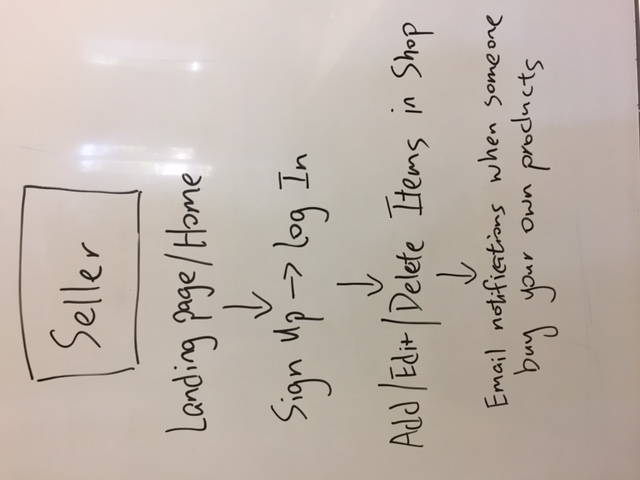 Seller
Landing page/Home
Sign Up → Log In
Add/Edit/Delete Items in Shop
Email notifications when someone
buy your own products